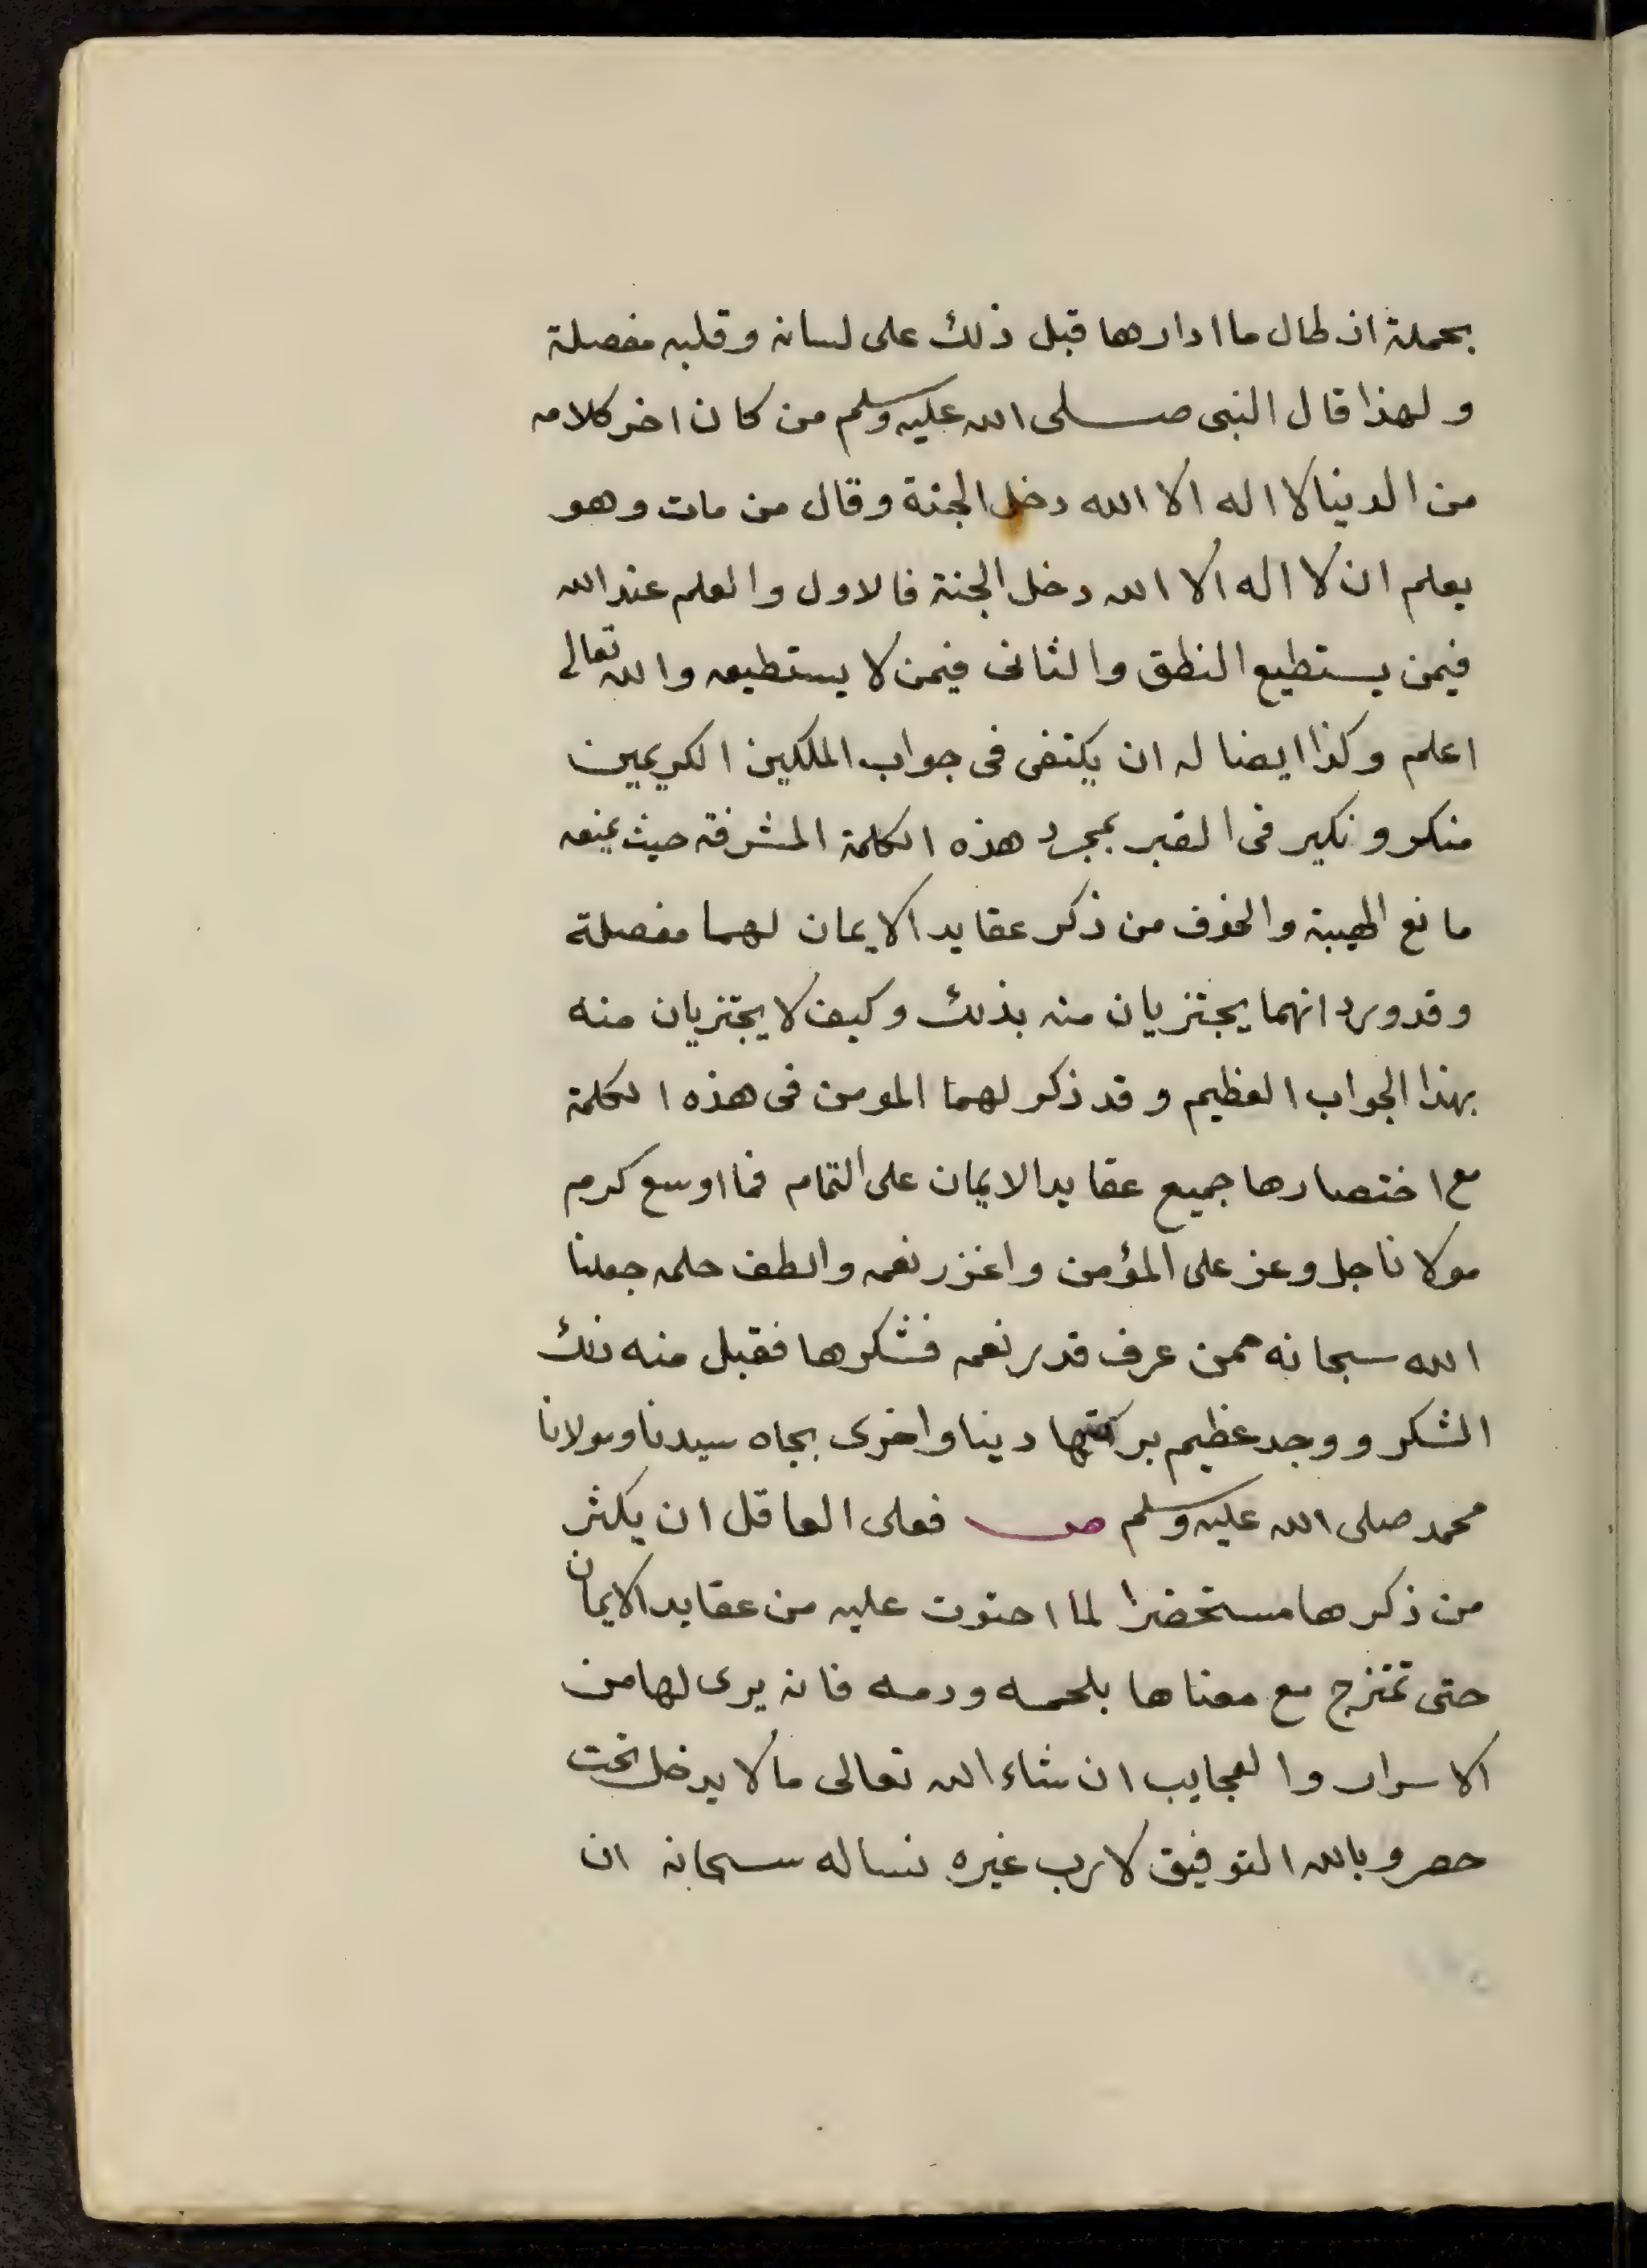 بجملة اذ طال ما ادارها قبل ذلك على لسانه وقلبه مفصلة
ولهذا قال النبى صلى الله عليه وسلم من كان اخر كلامه
من الدينا لا اله الا الله دخل الجنة وقال من مات وهو
يعلم ان لا اله الا الله دخل الجنة فالاول والعلم عند الله
فيمن يستطيع النطق والثانى فيمن لا يستطيعه والله تعالى
اعلم وكذا ايضا له ان يكتفى فى جواب الملكين الكريمين
منكر ونكير فى القبر بمجرد هذه الكلمة المشرفة حيث يمنعه
مانع الهيبة والخوف من ذكر عقايد الايمان لهما مفصلة
وقد ورد انهما يجتزيان منه بذلك وكيف لا يجتزيان منه
بهذا الجواب العظيم وقد ذكر لهما المومن فى هذه الكلمة
مع اختصارها جميع عقايد الايمان على التمام فما اوسع كرم
مولانا جل وعز على المؤمن واغزر نعمه والطف حلمه جعلنا
الله سبحانه ممن عرف قدر نعمه فشكرها فقبل منه ذلك
الشكر ووجد عظيم بركتها دينا واخرى بجاه سيدنا ومولانا
محمد صلى الله عليه وسلم ص فعلى العاقل ان يكثر
من ذكرها مستحضرا لما احتوت عليه من عقايد الايمان
حتى تمتزج مع معناها بلحمه ودمه فانه يرى لها من
الاسرار والعجايب ان شاء الله تعالى ما لا يدخل تحت
حصر وبالله التوفيق لا رب غيره نساله سبحانه ان